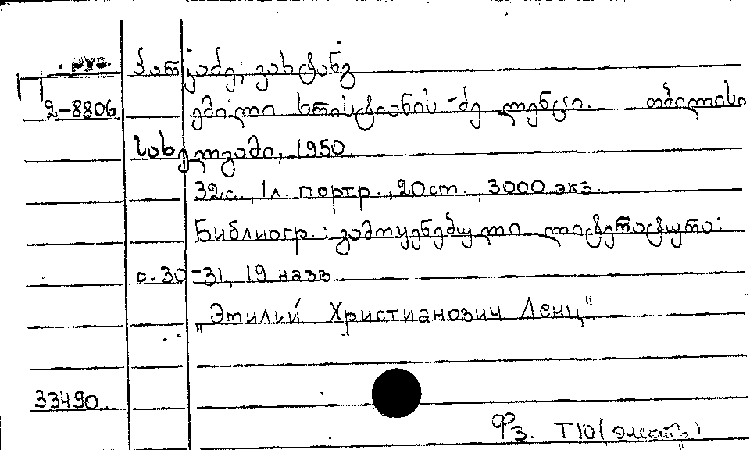 კარკაძე, ვახტანგ
2-8806 ემილი ხრისტიანის-ძე ლენცი. თბილისი
სახელგამი, 1950
32 с., 1 л. портр., 20 cт., 3000 экз.
Библиогр.: გამოყენებული ლიტერატურა:
с. 30-31, 19 назв.
„Эмилий Христианович Ленц"
33490
Фз. Т10 (элект.)